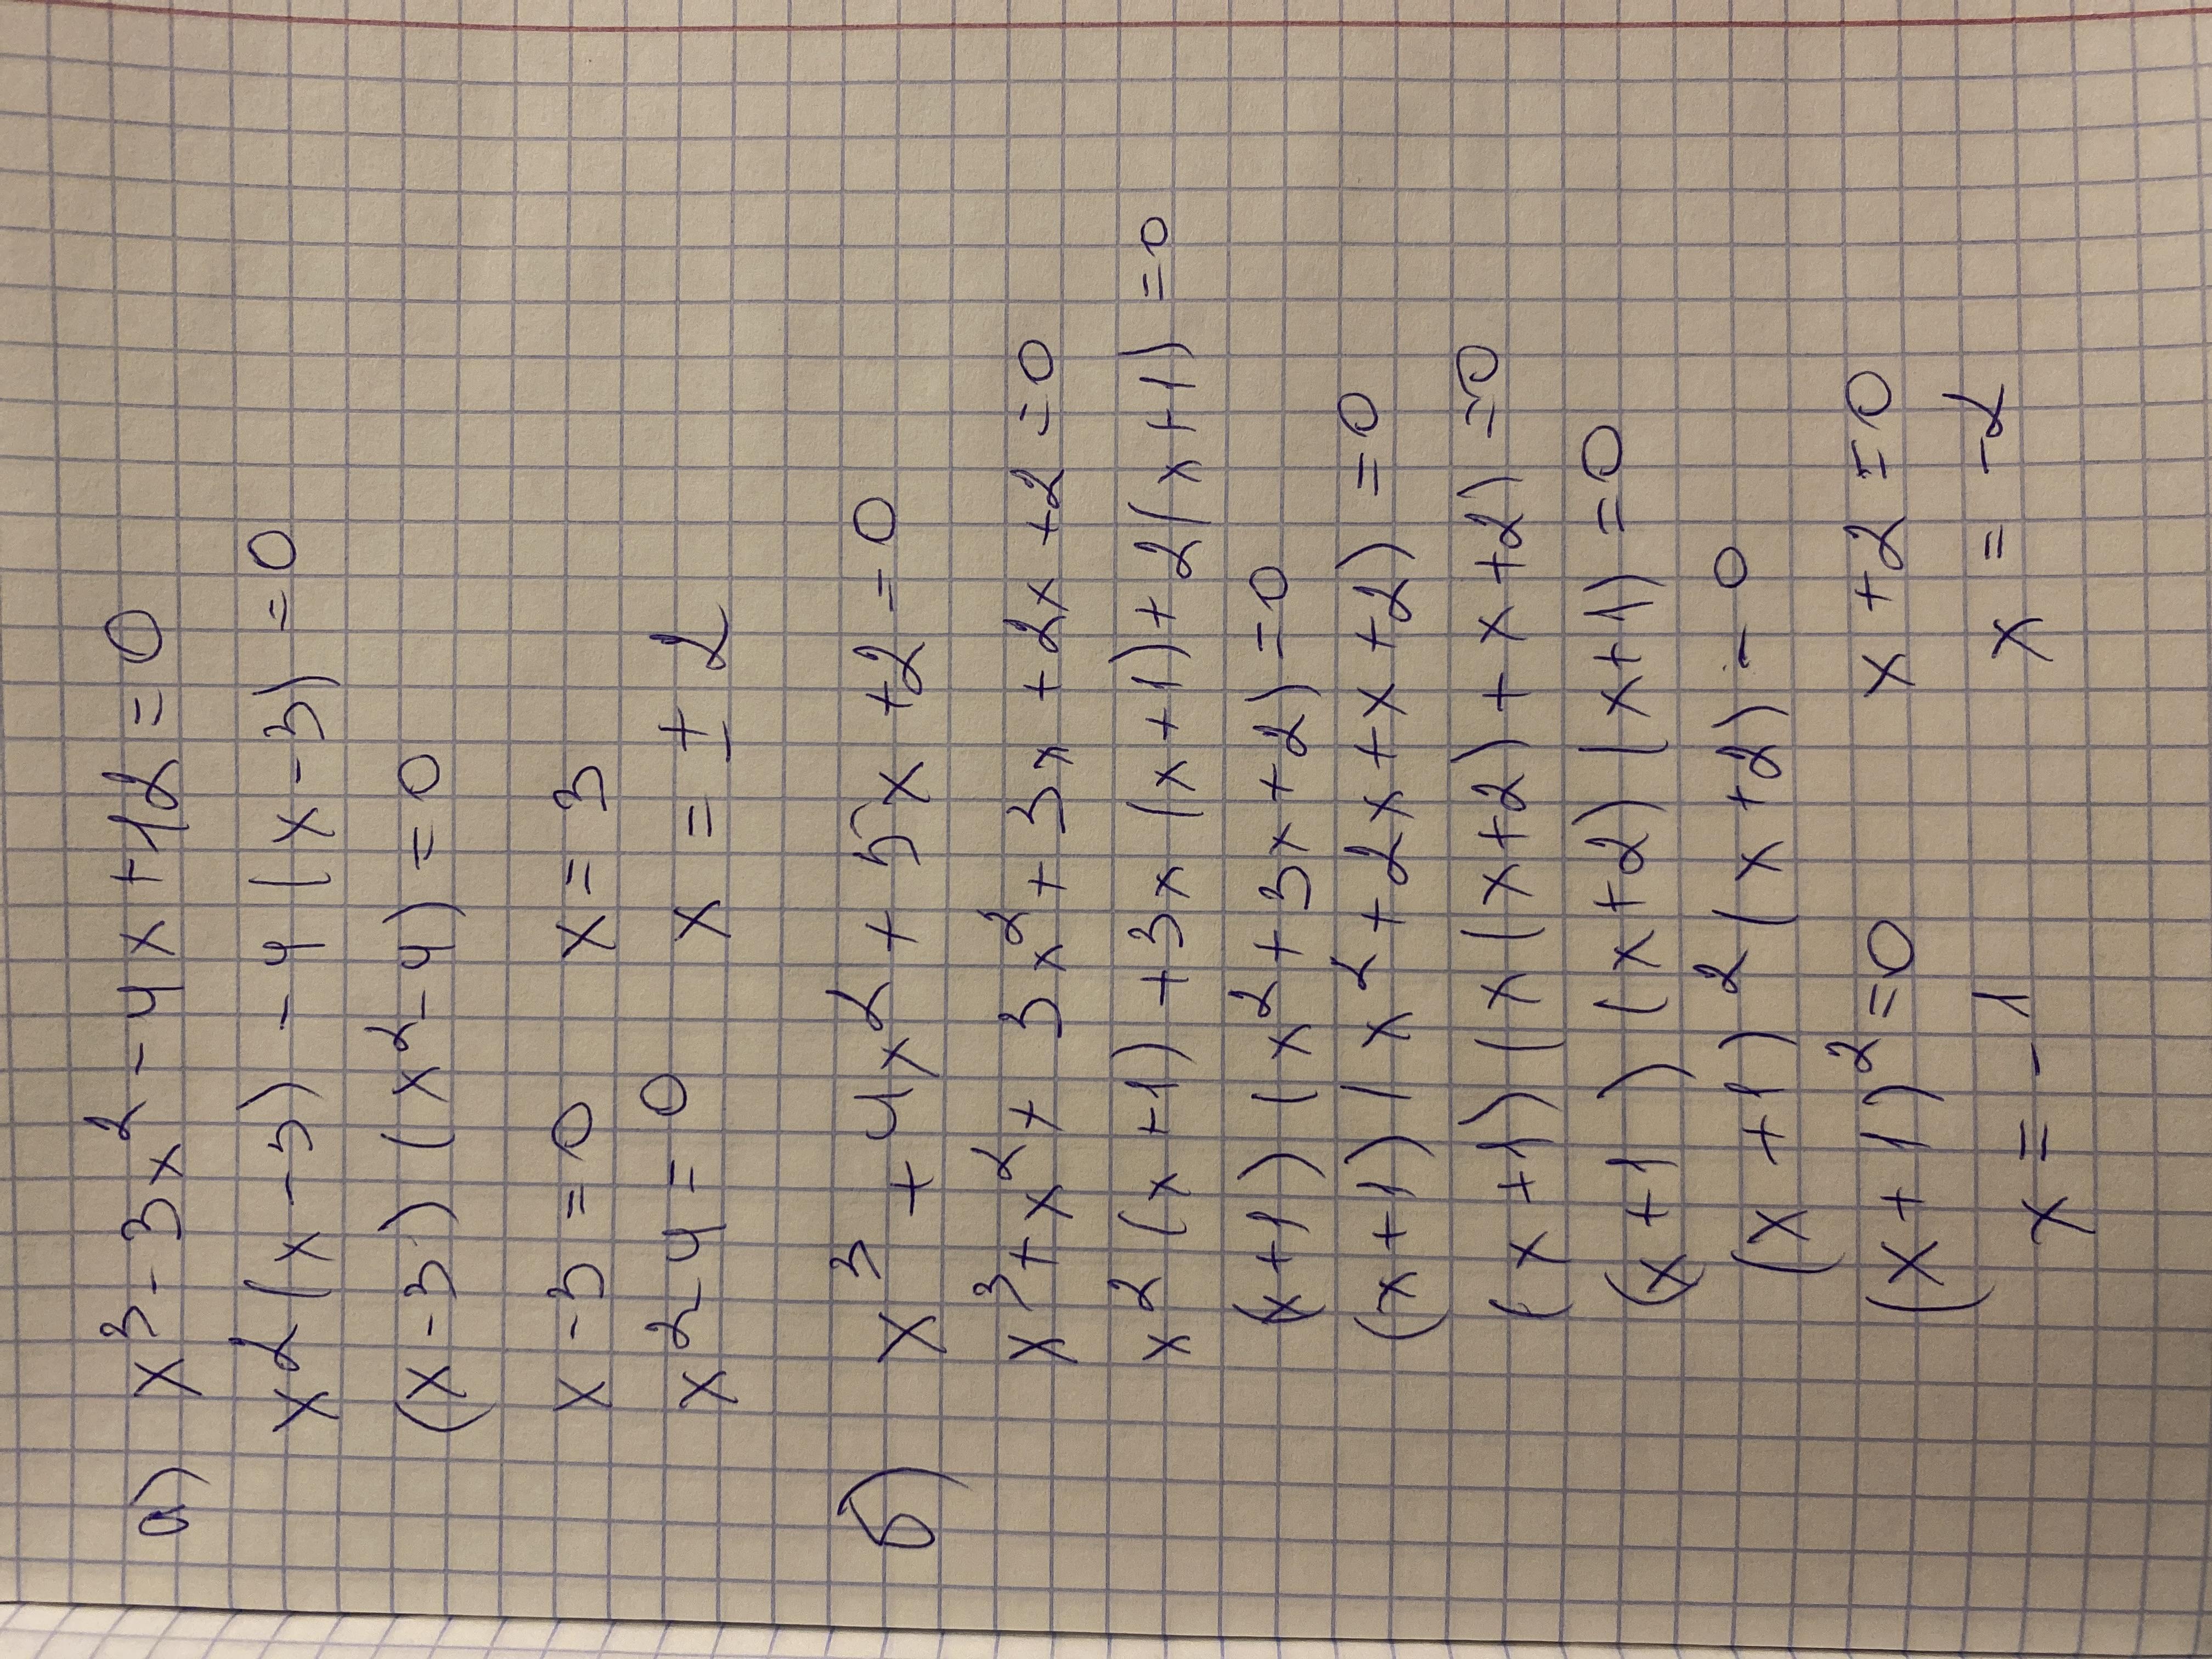 а) x³ - 3x² - 4x + 12 = 0
x²(x - 3) - 4(x - 3) = 0
(x - 3)(x² - 4) = 0
x - 3 = 0 x = 3
x² - 4 = 0 x = ± 2
б) x³ + 4x² + 5x + 2 = 0
x³ + x² + 3x² + 3x + 2x + 2 = 0
x²(x + 1) + 3x(x + 1) + 2(x + 1) = 0
(x + 1)(x² + 3x + 2) = 0
(x + 1)(x² + 2x + x + 2) = 0
(x + 1)(x(x + 2) + x + 2) = 0
(x + 1)(x + 2)(x + 1) = 0
(x + 1)²(x + 2) = 0
(x + 1)² = 0 x + 2 = 0
x = - 1 x = - 2